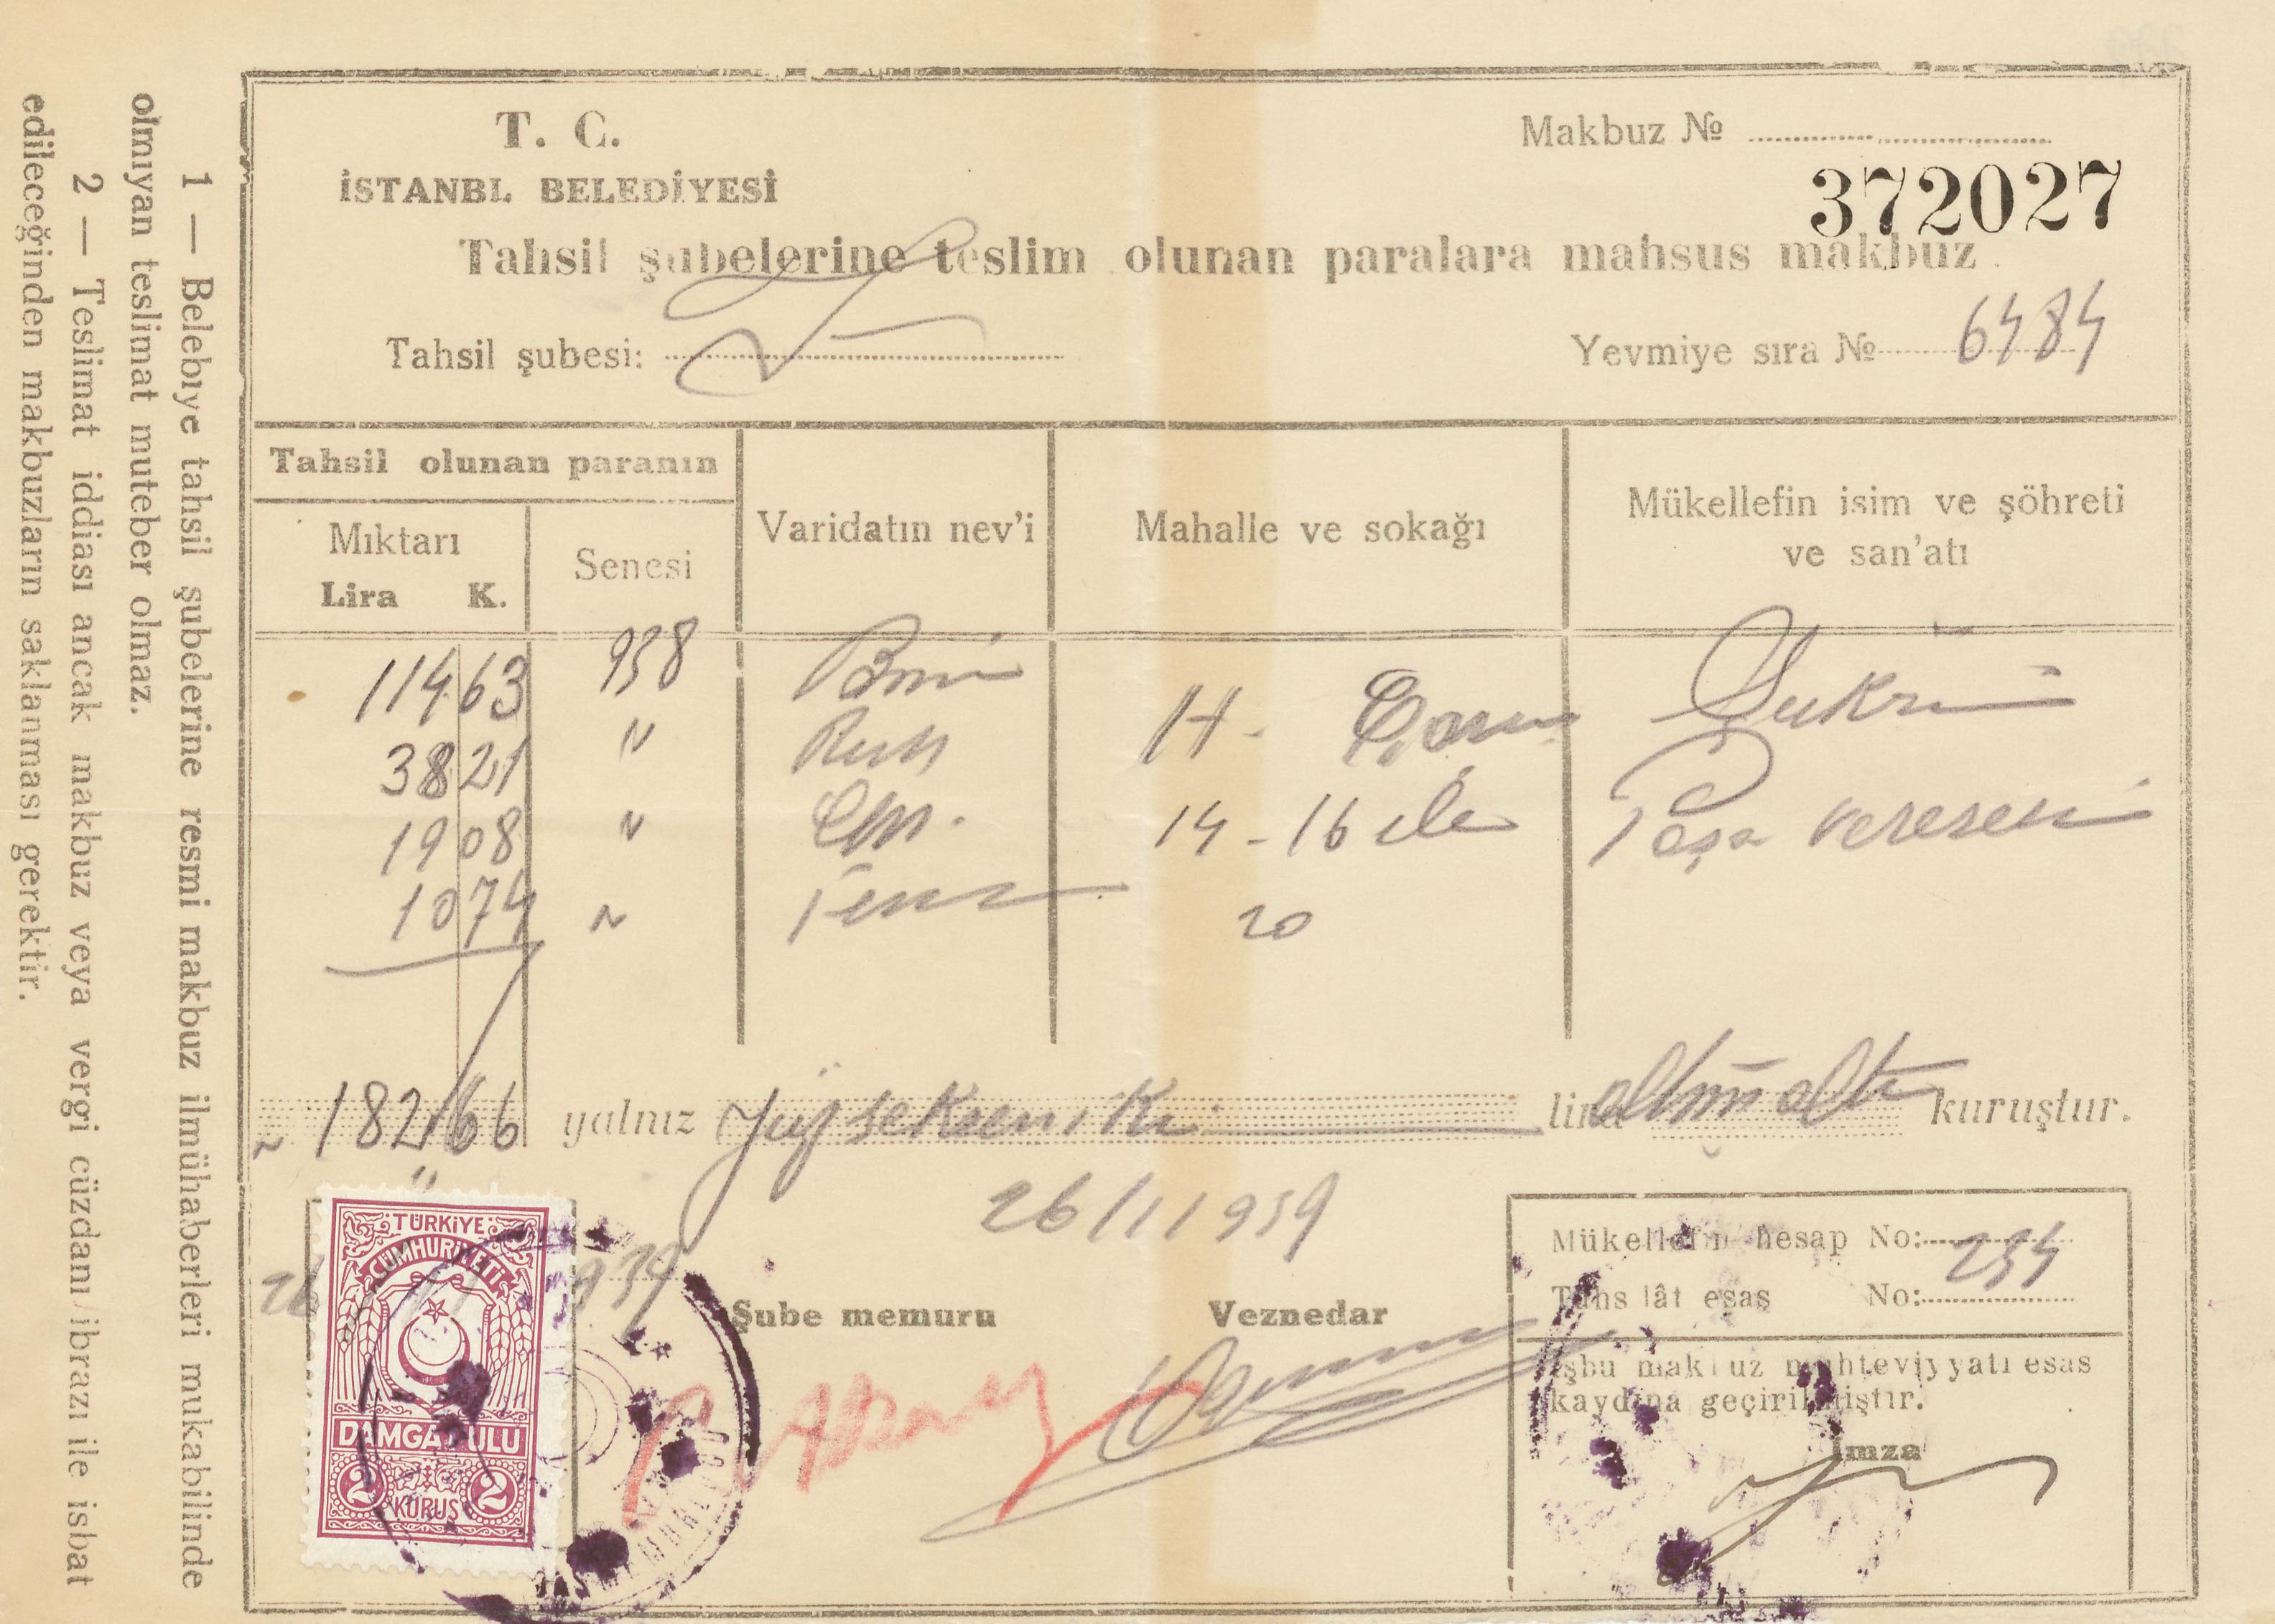 T. C.
İSTANBL BELEDİYESİ
Makbuz №
372027
Tahsil şubelerine teslim olunan paralara mahsus makbuz
Tahsil şubesi:
Yevmiye sıra № 6484
Tahsil olunan paranın
Mıktarı
Lira K.
Senesi
Varidatın nev'i
Mahalle ve sokağı
Mükellefin isim ve şöhreti
ve san'atı
114 63 938
38 21 "
19 08 "
10 74 "
H-
14 - 16 ile
20
Şukrü
Paşa veresesi
182 66 yalnız Yüzseksen iki lira altmış altı kuruştur.
26/11 939
26 939
TÜRKİYE
CÜMHURİYETİ
DAMGA PULU
2 KURUŞ 2
Şube memuru
Veznedar
Mükellefin hesap No: 254
Tahsilât esas No:
İşbu makbuz muhteviyyatı esas
kaydına geçirilmiştir.
İmza
1 — Belebiye tahsil şubelerine resmi makbuz ilmühaberleri mukabilinde
olmıyan teslimat muteber olmaz.
2 — Teslimat iddiası ancak makbuz veya vergi cüzdanı ibrazı ile isbat
edileceğinden makbuzların saklanması gerektir.